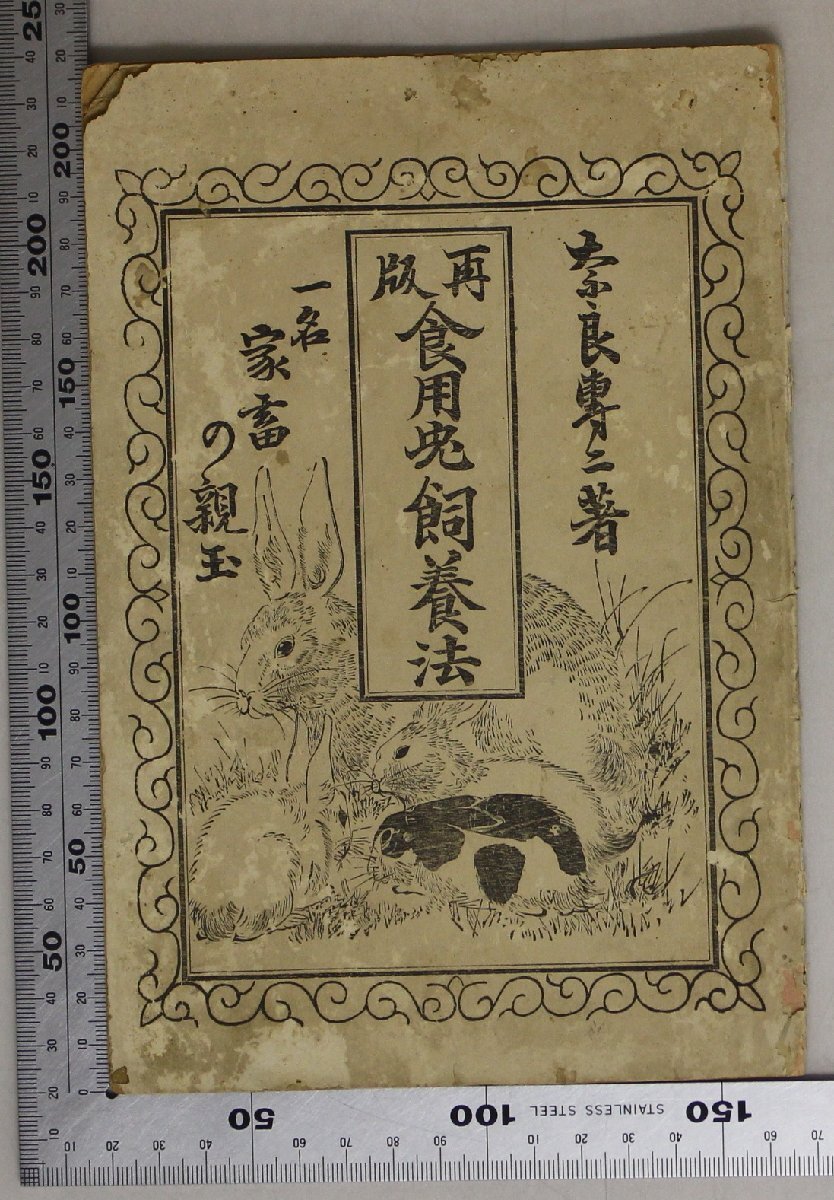 奈良專二著
再版
食用兎飼養法
一名
家畜
の親玉
STAINLESS STEEL
25
200
150
100
50
200
150
100
50
50
100
150